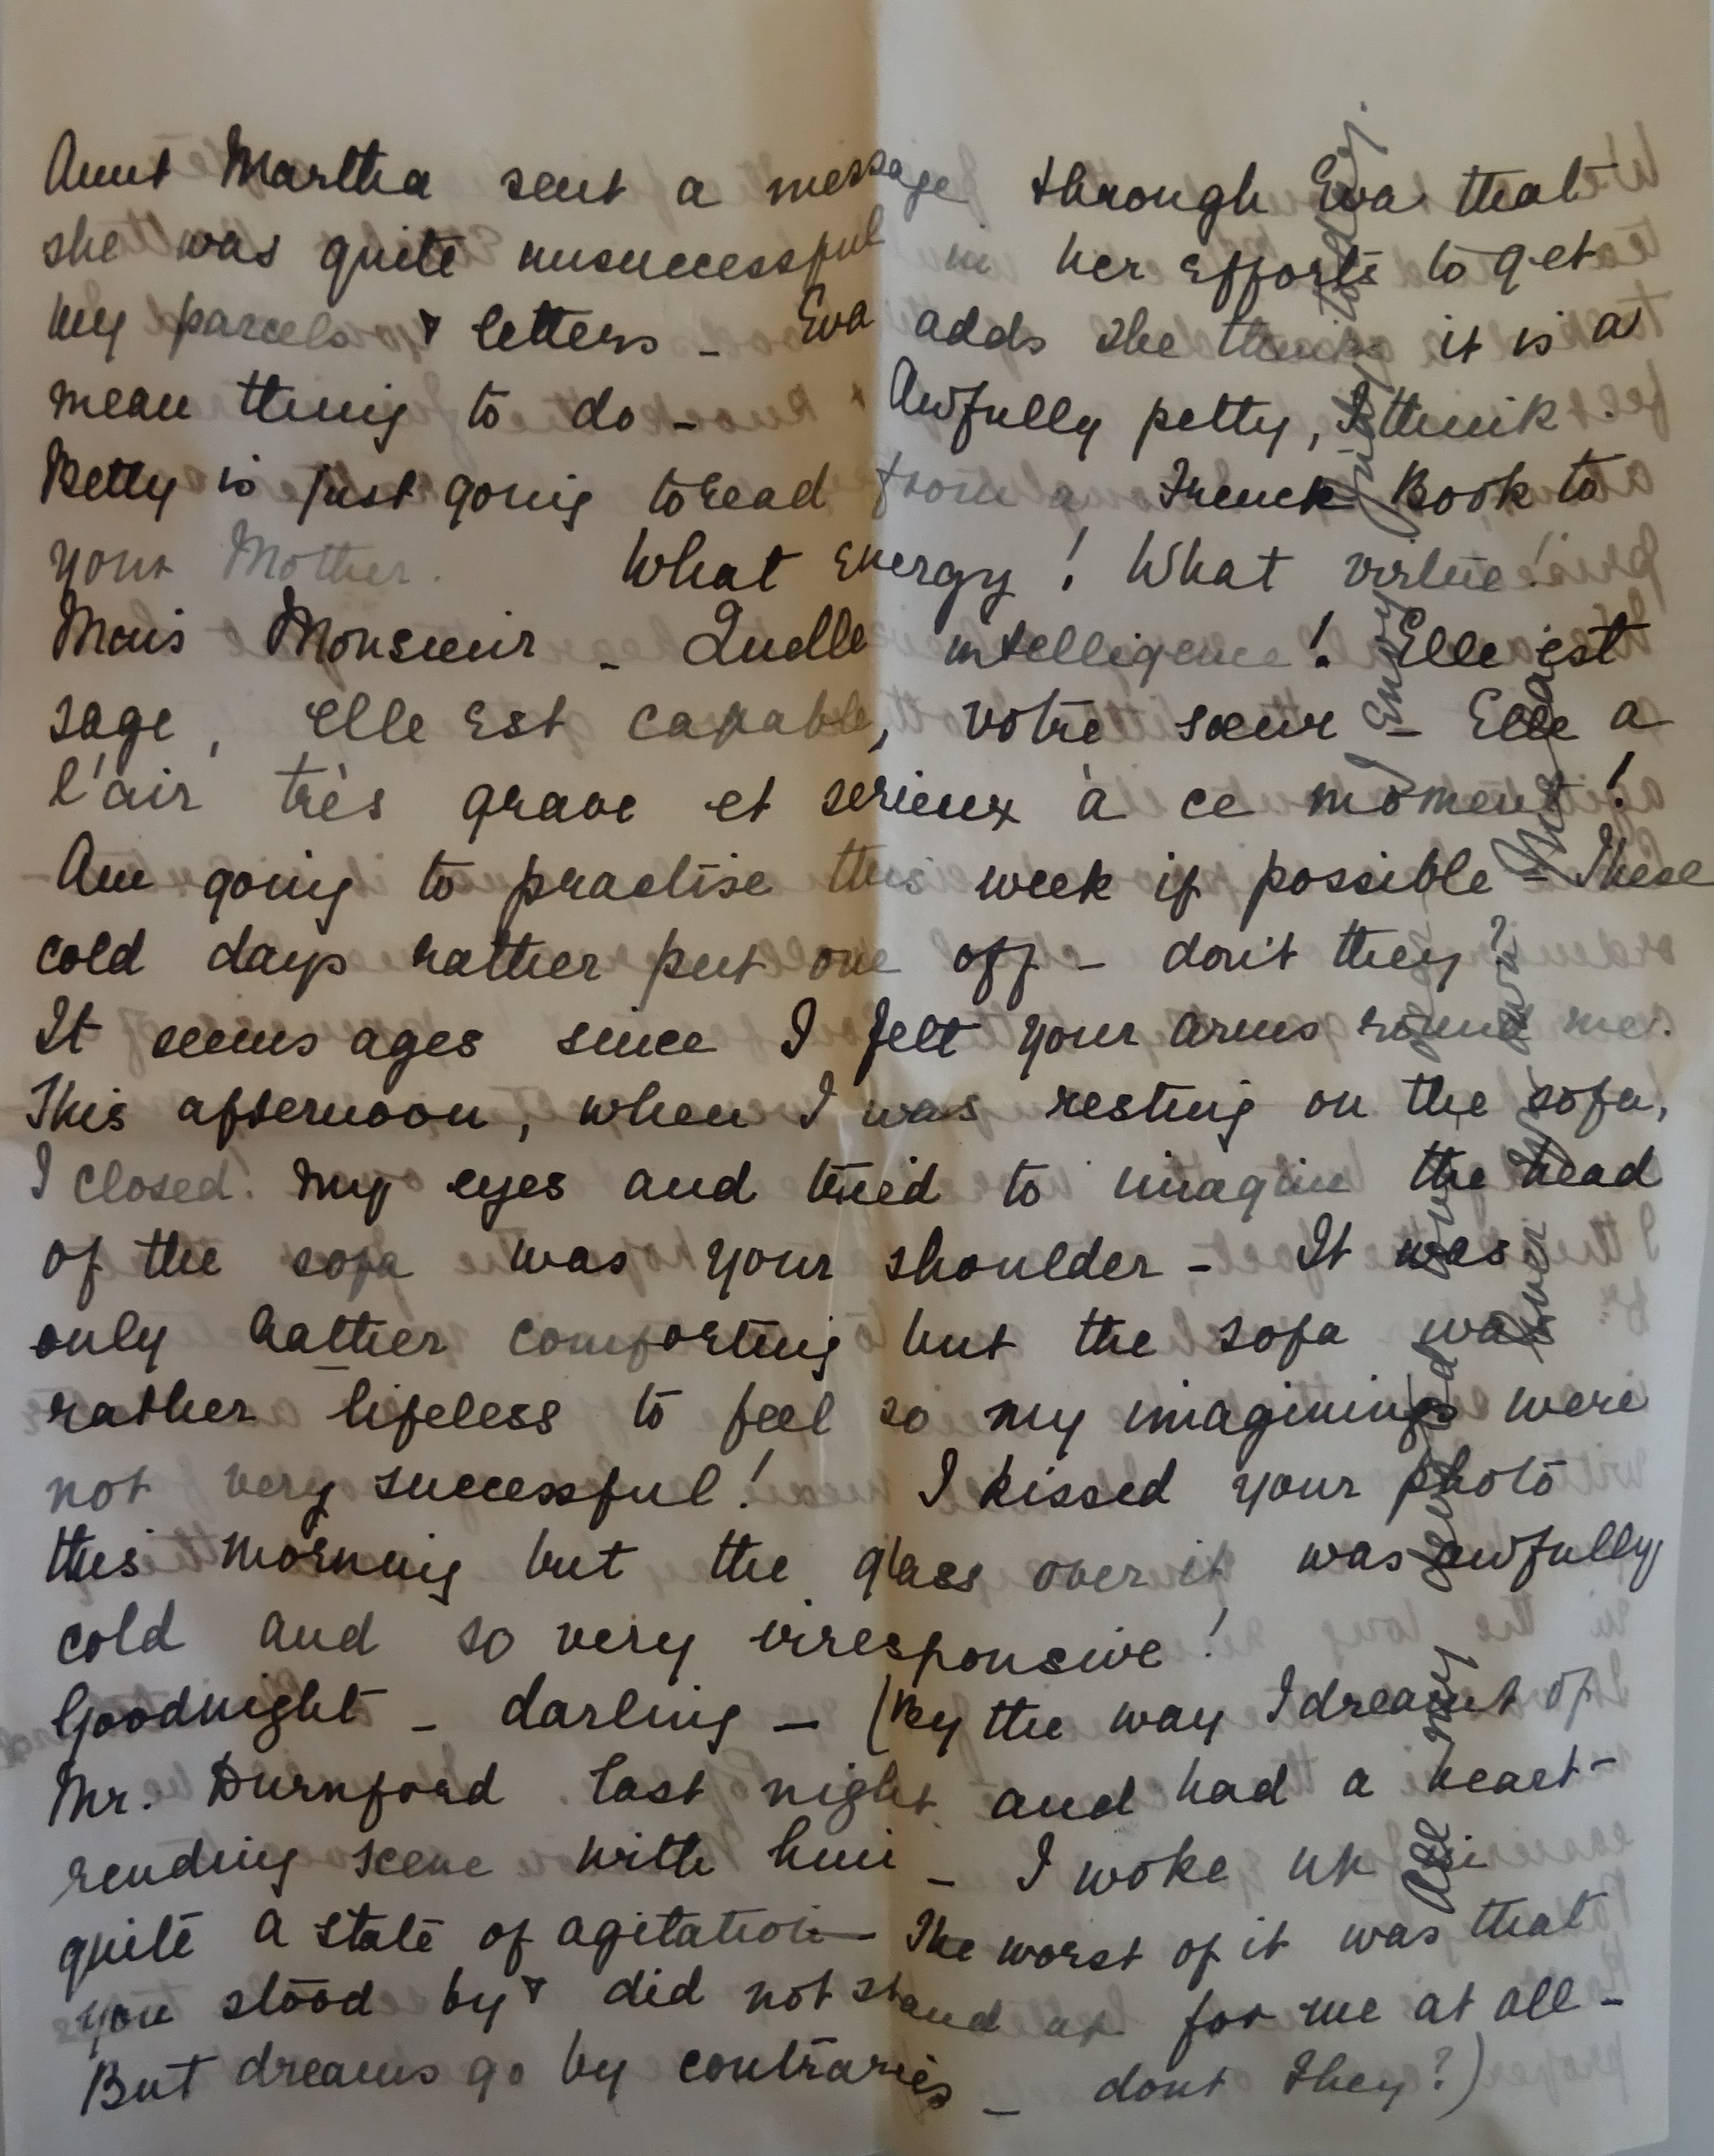 Aunt Martha sent a message through Eva that
she was quite unsuccessful in her efforts to get
my parcels & letters - Eva adds she thinks it is a
mean thing to do - Awfully petty, I think.
Betty is just going to read from a French Book to
your Mother. What energy! What virtue!
Mais Monsieur - Quelle intelligence! Elle est
sage, elle est capable, votre sœur - Elle a
l'air très grave et serieux à ce moment!
Am going to practise this week if possible - These
cold days rather put one off - don't they?
It seems ages since I felt your arms round me.
This afternoon, when I was resting on the sofa,
I closed my eyes and tried to imagine the head
of the sofa was your shoulder - It was
only rather comforting but the sofa was
rather lifeless to feel so my imaginings were
not very successful! I kissed your photo
this morning but the glass over it was awfully
cold and so very irresponsive!
Goodnight - darling - (By the way I dreamt of
Mr. Durnford last night and had a heart-
rending scene with him - I woke up in
quite a state of agitation - The worst of it was that
you stood by & did not stand up for me at all -
But dreams go by contraries - dont they?)
All my
ever your